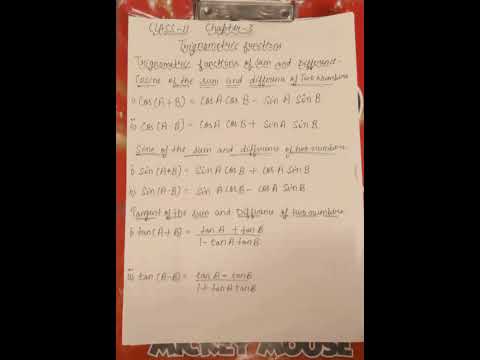 CLASS-11 Chapter-3
Trigonometric functions
Trigonometric functions of sum and Difference-
Cosine of the sum and difference of Two Numbers
i) Cos(A+B) = CosA CosB - SinA SinB
ii) Cos(A-B) = CosA CosB + SinA SinB
Sine of the sum and difference of two numbers
i) Sin(A+B) = Sin A CosB + Cos A Sin B
ii) Sin(A-B) = Sin A CosB - cos A Sin B
Tangent of the Sum and Differnce of two numbers
i) tan(A+B) = tan A + tan B
1 - tanA tanB
ii) tan(A-B) = tanA - tanB
1 + tanA tanB
MICKEY MOUSE